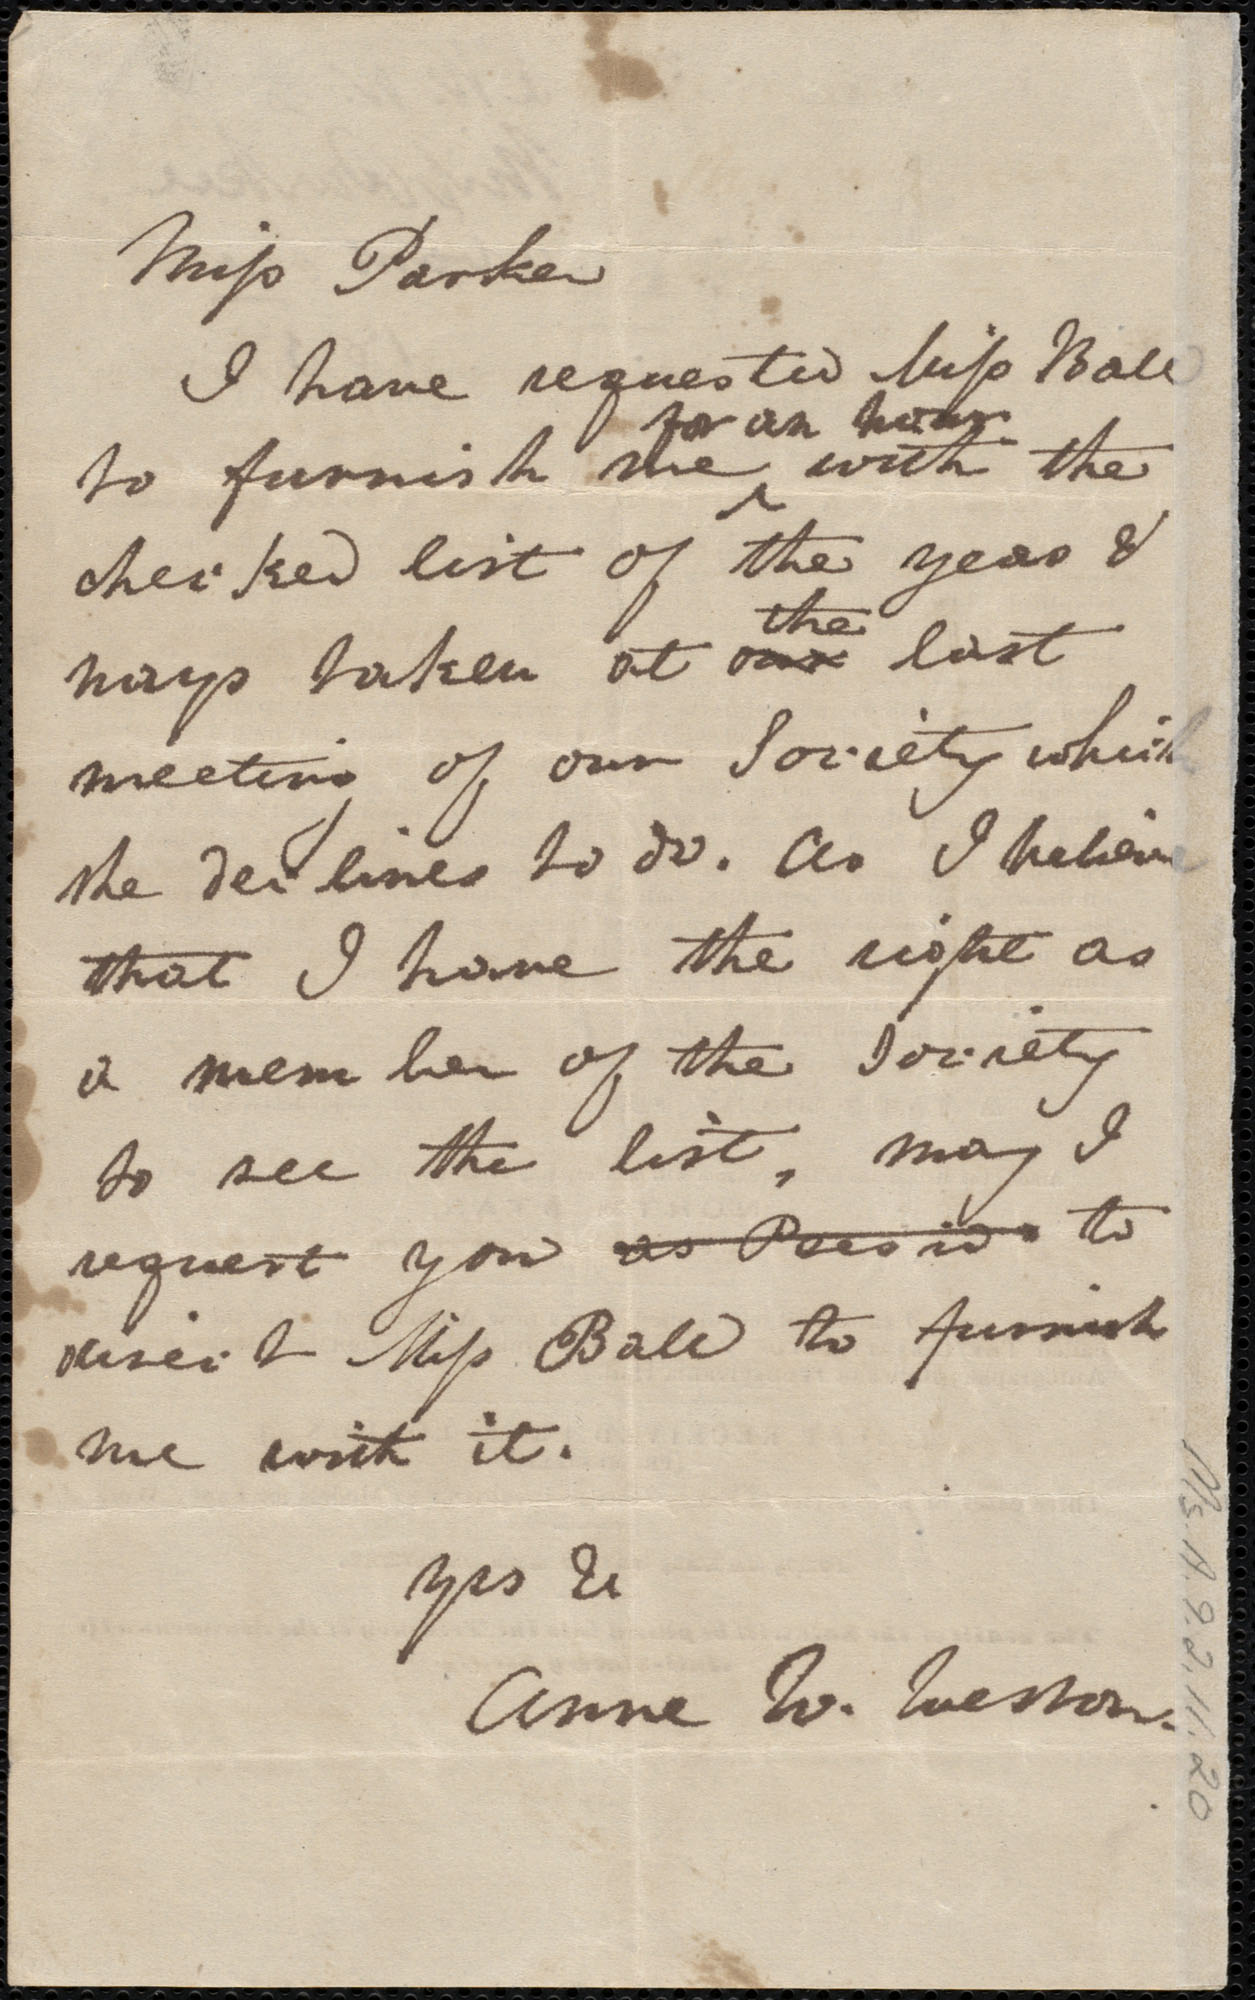 Miss Parker
I have requested Miss Ball
for an hour
to furnish me ^ with the
checked list of the yeas &
the
nays taken at our last
meeting of our Society which
she declines to do. As I believe
that I have the right as
a member of the Society
to see the list, may I
request you as Presid to
direct Miss Ball to furnish
me with it.
yrs &c
Anne W. Weston.
Ms.A.9.2.11.20